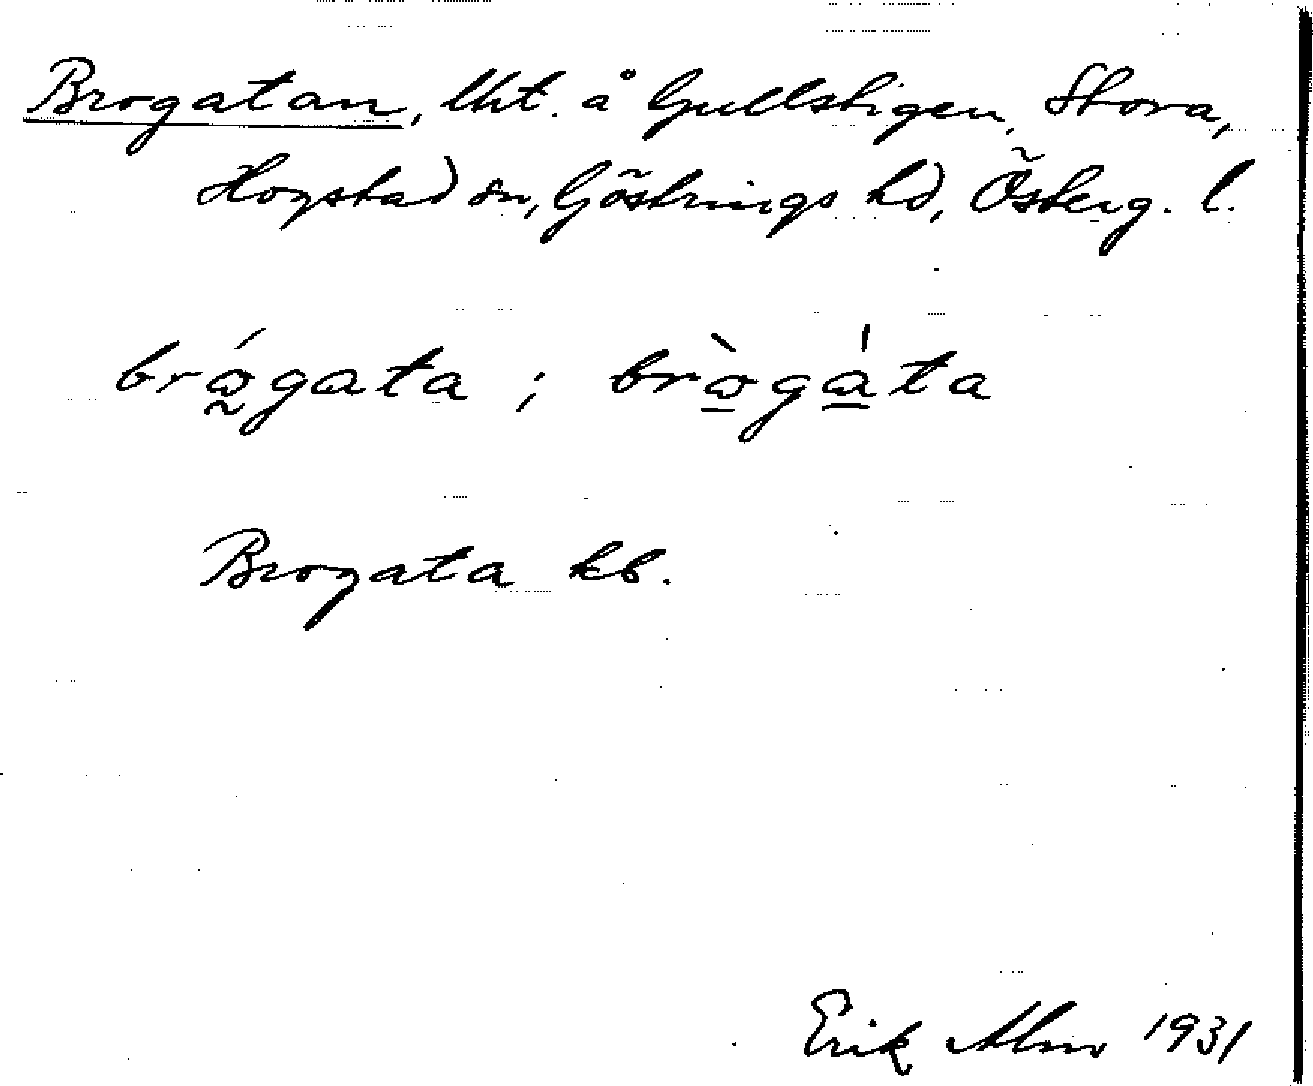 Brogatan, lht. å Gullstigen, Stora,
Hogstad sn, Göstrings hd, Österg. l.
brógata ; bròga̍ta
Brogata kb.
Erik Alm 1931